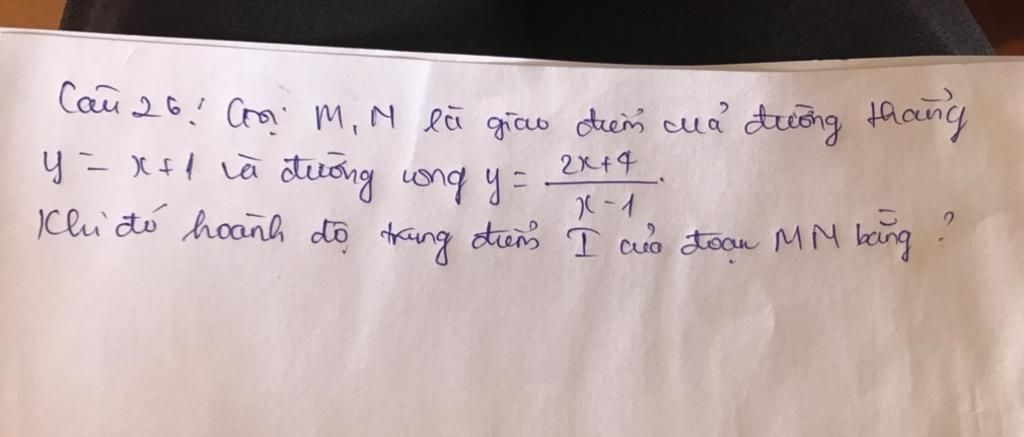 Câu 26: Gọi M, N là giao điểm của đường thẳng
y = x+1 và đường cong y = \frac{2x+4}{x-1}.
Khi đó hoành độ trung điểm I của đoạn MN bằng ?